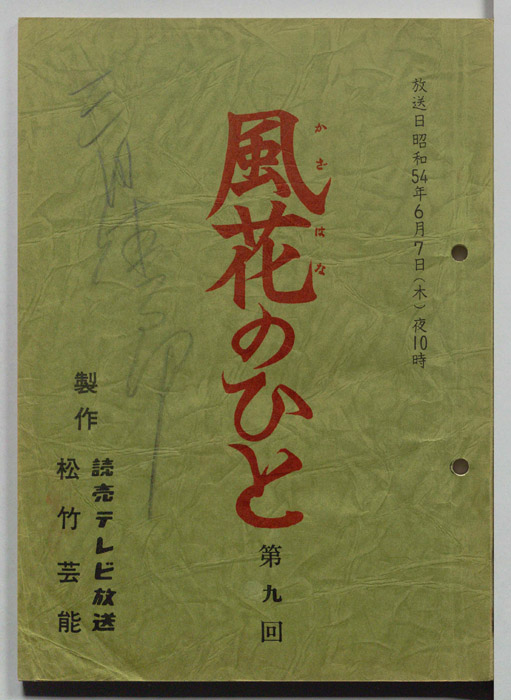 放送日昭和54年6月7日(木)夜10時
かざはな
風花のひと
第九回
製作
読売テレビ放送
松竹芸能